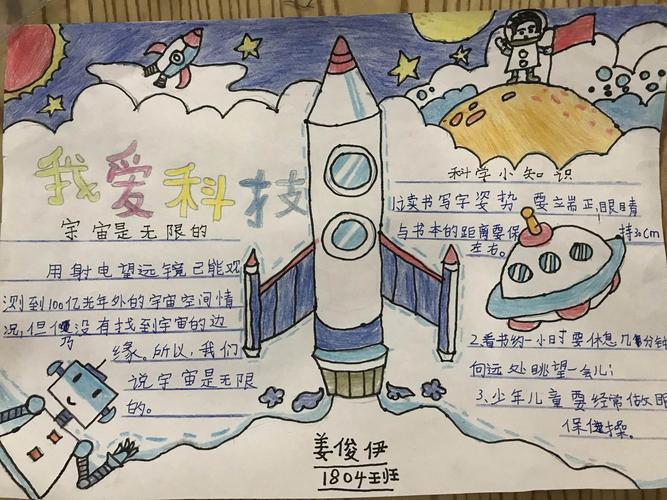 我爱科技
宇宙是无限的
用射电望远镜已能观
测到100亿光年外的宇宙空间情
况,但仍没有找到宇宙的边
缘。所以,我们
说宇宙是无限
的。
科学小知识
1,读书写字姿势 要立端正,眼睛
与书本的距离要保 持30cm
左右。
2.看书约一小时要休息几分钟
向远处眺望一会儿;
3、少年儿童要经常做眼
保健操。
姜俊伊
1804班